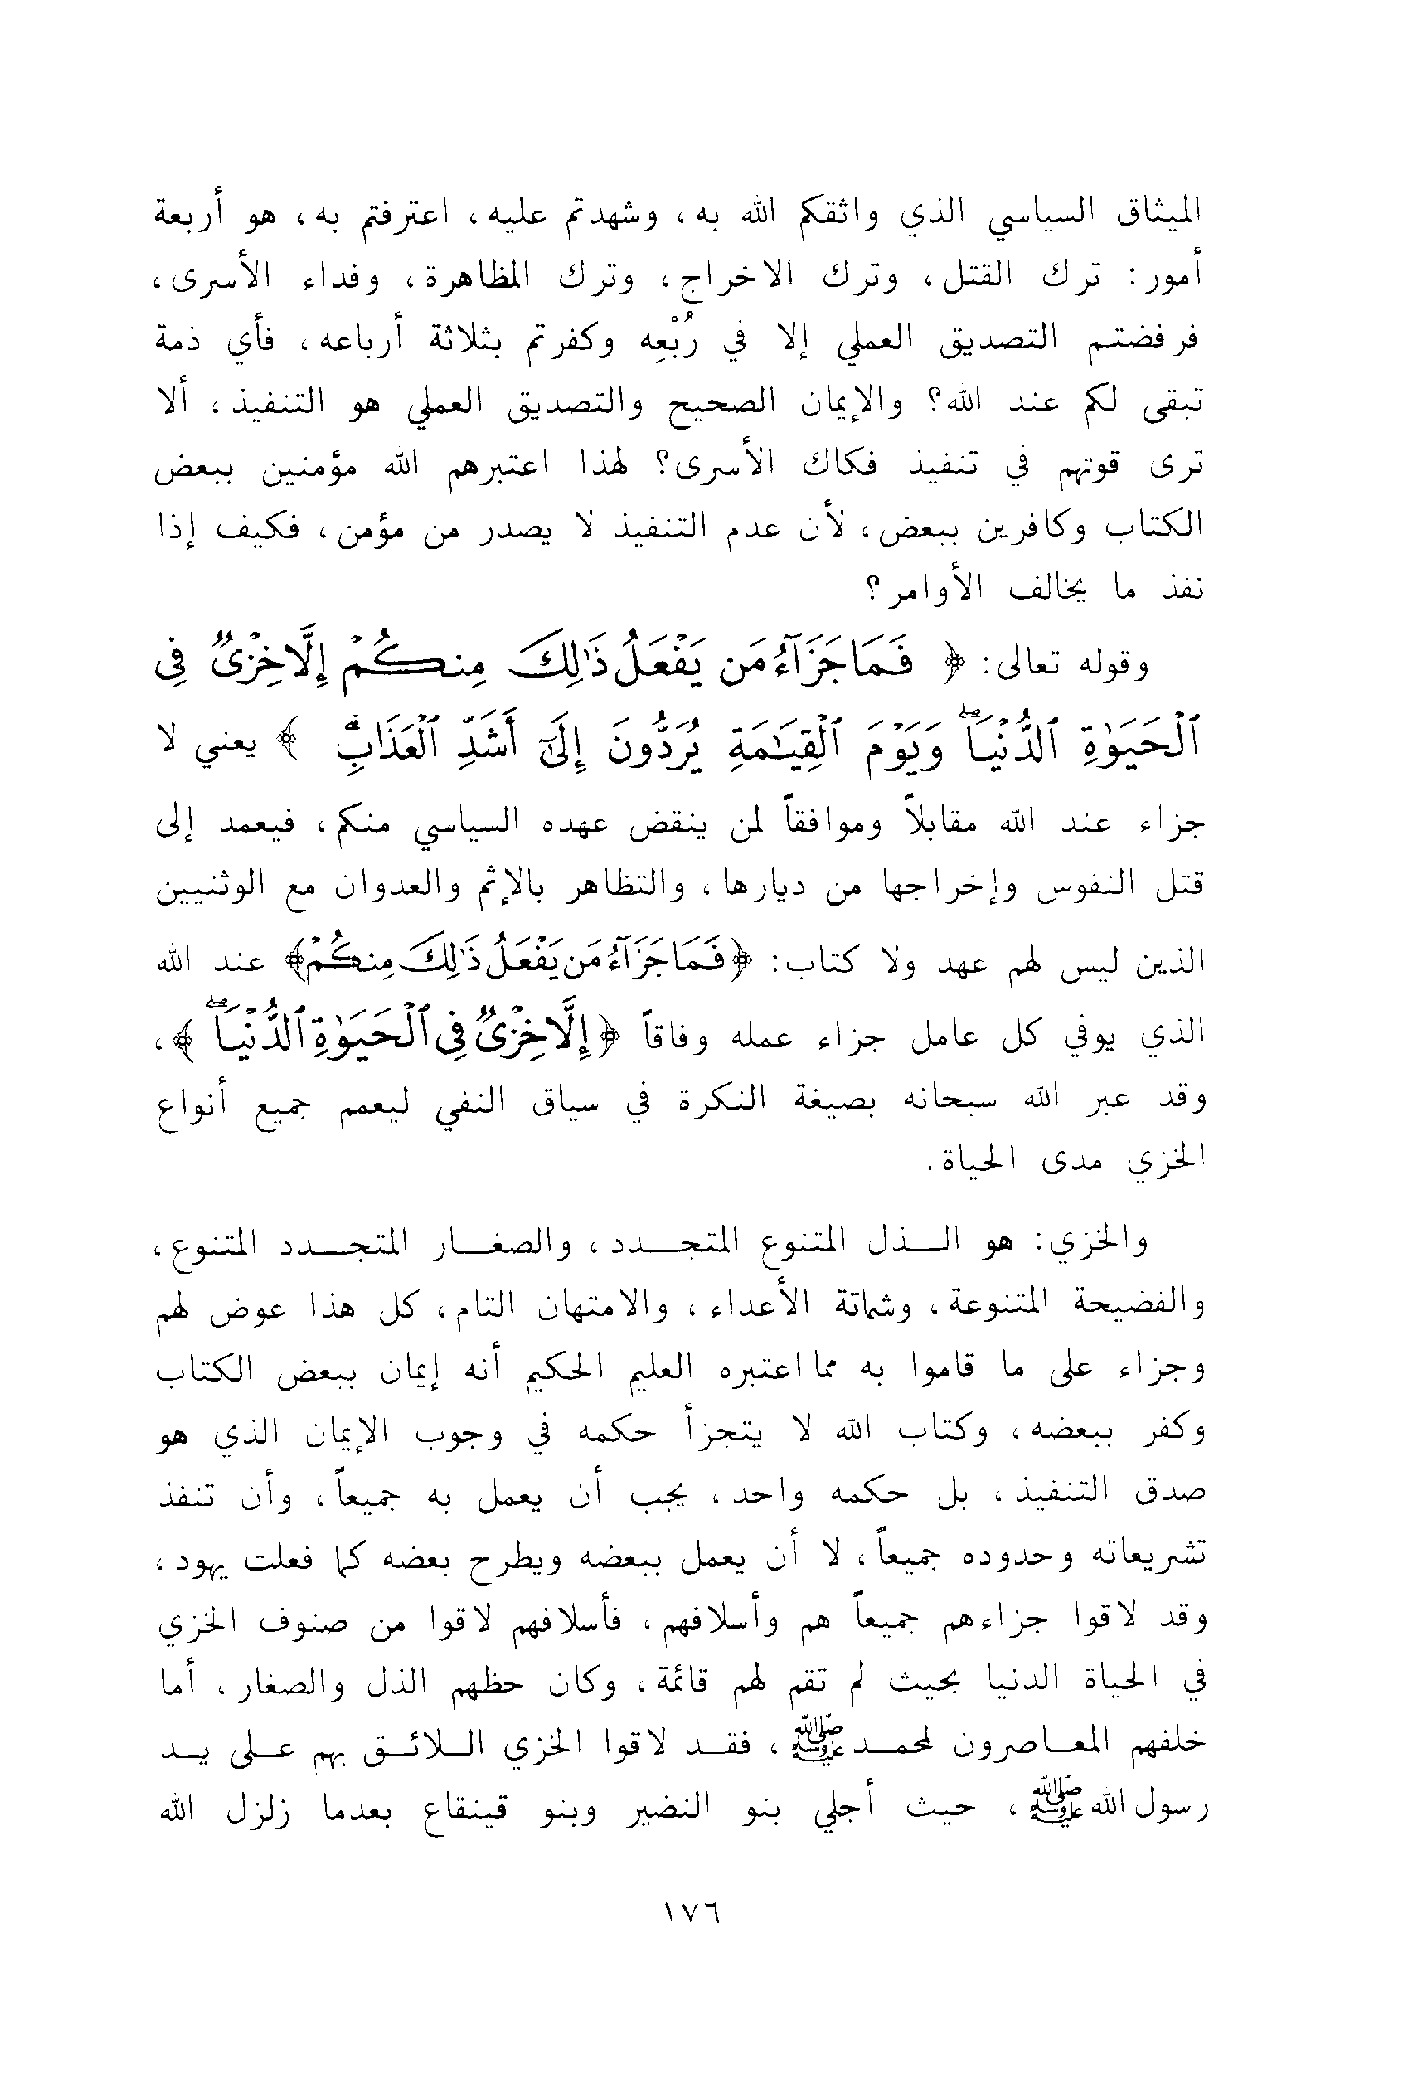 الميثاق السياسي الذي واثقكم الله به، وشهدتم عليه، اعترفتم به، هو أربعة
أمور: ترك القتل، وترك الاخراج، وترك المظاهرة، وفداء الأسرى،
فرفضتم التصديق العملي إلا في رُبْعِه وكفرتم بثلاثة أرباعه، فأي ذمة
تبقى لكم عند الله؟ والإيمان الصحيح والتصديق العملي هو التنفيذ، ألا
ترى قوتهم في تنفيذ فكاك الأسرى؟ لهذا اعتبرهم الله مؤمنين ببعض
الكتاب وكافرين ببعض، لأن عدم التنفيذ لا يصدر من مؤمن، فكيف إذا
نفذ ما يخالف الأوامر؟
وقوله تعالى: ﴿ فَمَا جَزَآءُ مَن يَفْعَلُ ذَٰلِكَ مِنكُمْ إِلَّا خِزْىٌ فِى
ٱلْحَيَوٰةِ ٱلدُّنْيَا ۖ وَيَوْمَ ٱلْقِيَـٰمَةِ يُرَدُّونَ إِلَىٰٓ أَشَدِّ ٱلْعَذَابِ ۗ ﴾ يعني لا
جزاء عند الله مقابلاً وموافقاً لمن ينقض عهده السياسي منكم، فيعمد إلى
قتل النفوس وإخراجها من ديارها، والتظاهر بالإثم والعدوان مع الوثنيين
الذين ليس لهم عهد ولا كتاب: ﴿فَمَا جَزَآءُ مَن يَفْعَلُ ذَٰلِكَ مِنكُمْ﴾ عند الله
الذي يوفي كل عامل جزاء عمله وفاقاً ﴿إِلَّا خِزْىٌ فِى ٱلْحَيَوٰةِ ٱلدُّنْيَا ۖ ﴾،
وقد عبر الله سبحانه بصيغة النكرة في سياق النفي ليعمم جميع أنواع
الخزي مدى الحياة.
والخزي: هو الـذل المتنوع المتجـدد، والصغـار المتجـدد المتنوع،
والفضيحة المتنوعة، وشماتة الأعداء، والامتهان التام، كل هذا عوض لهم
وجزاء على ما قاموا به مما اعتبره العليم الحكيم أنه إيمان ببعض الكتاب
وكفر ببعضه، وكتاب الله لا يتجزأ حكمه في وجوب الإيمان الذي هو
صدق التنفيذ، بل حكمه واحد، يجب أن يعمل به جميعاً، وأن تنفذ
تشريعاته وحدوده جميعاً، لا أن يعمل ببعضه ويطرح بعضه كما فعلت يهود،
وقد لاقوا جزاءهم جميعاً هم وأسلافهم، فأسلافهم لاقوا من صنوف الخزي
في الحياة الدنيا بحيث لم تقم لهم قائمة، وكان حظهم الذل والصغار، أما
خلفهم المعـاصرون لمحمـد ﷺ، فقـد لاقوا الخزي الـلائـق بهم عـلى يـد
رسول الله ﷺ، حيث أجلي بنو النضير وبنو قينقاع بعدما زلزل الله
١٧٦